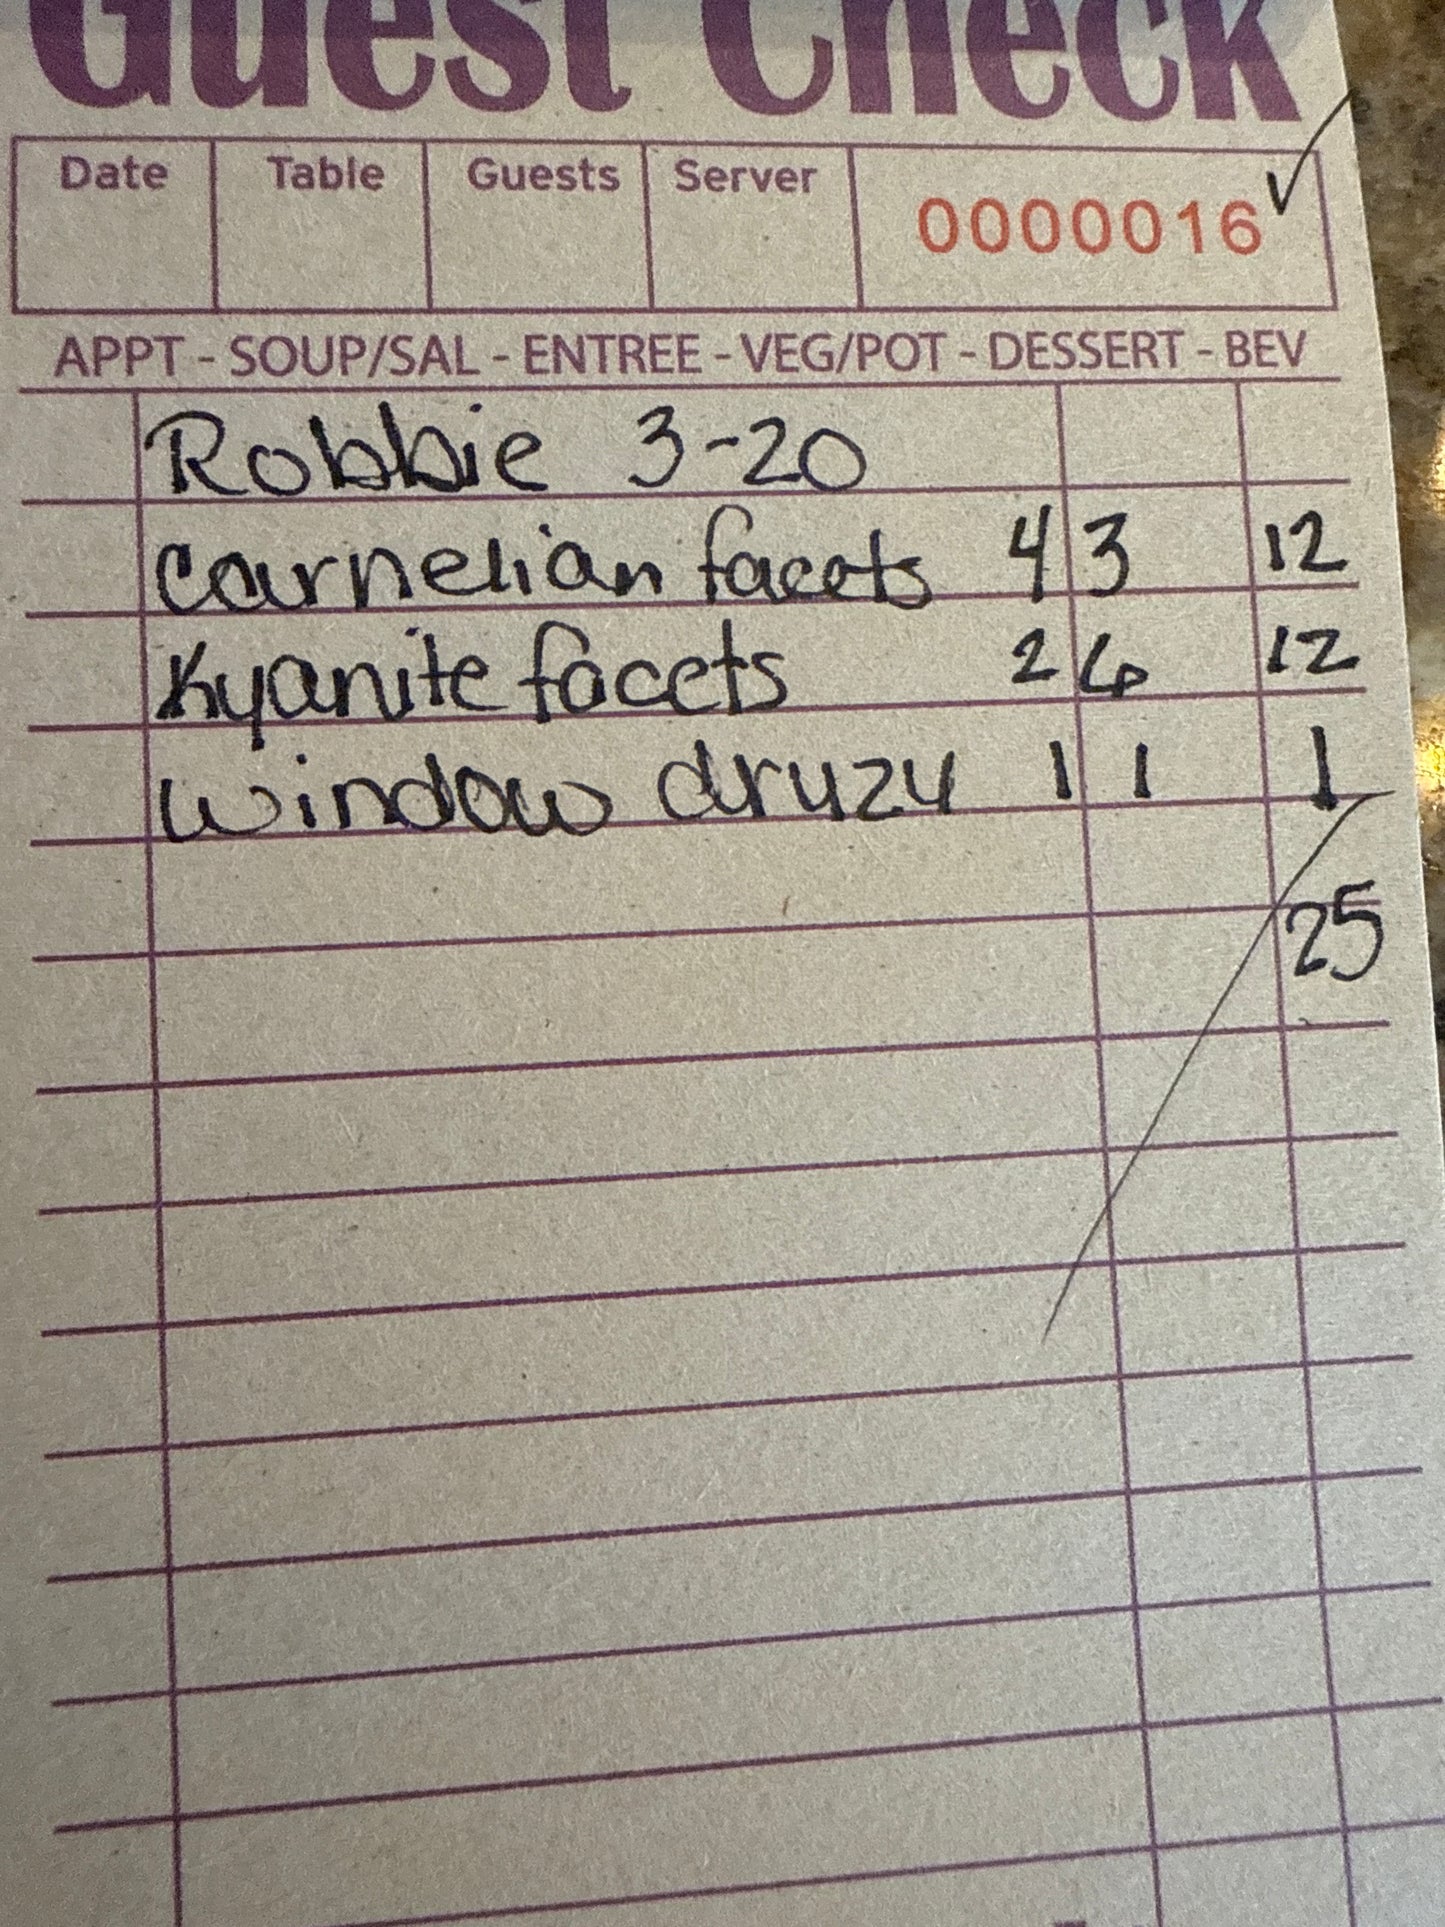 Guest Check
Date Table Guests Server 0000016 ✓
APPT - SOUP/SAL - ENTREE - VEG/POT - DESSERT - BEV
Robbie 3-20
Carnelian facets 4 3 12
Kyanite facets 2 6 12
Window druzy 1 1 1
25